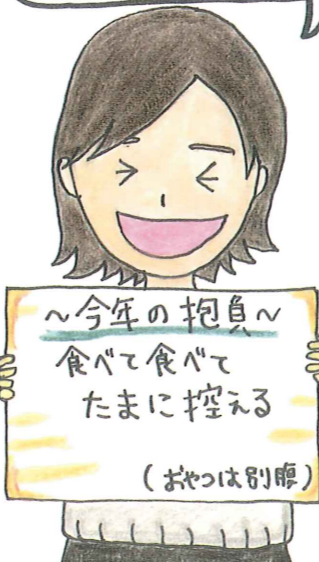 ～今年の抱負～
食べて食べて
たまに控える
(おやつは別腹)